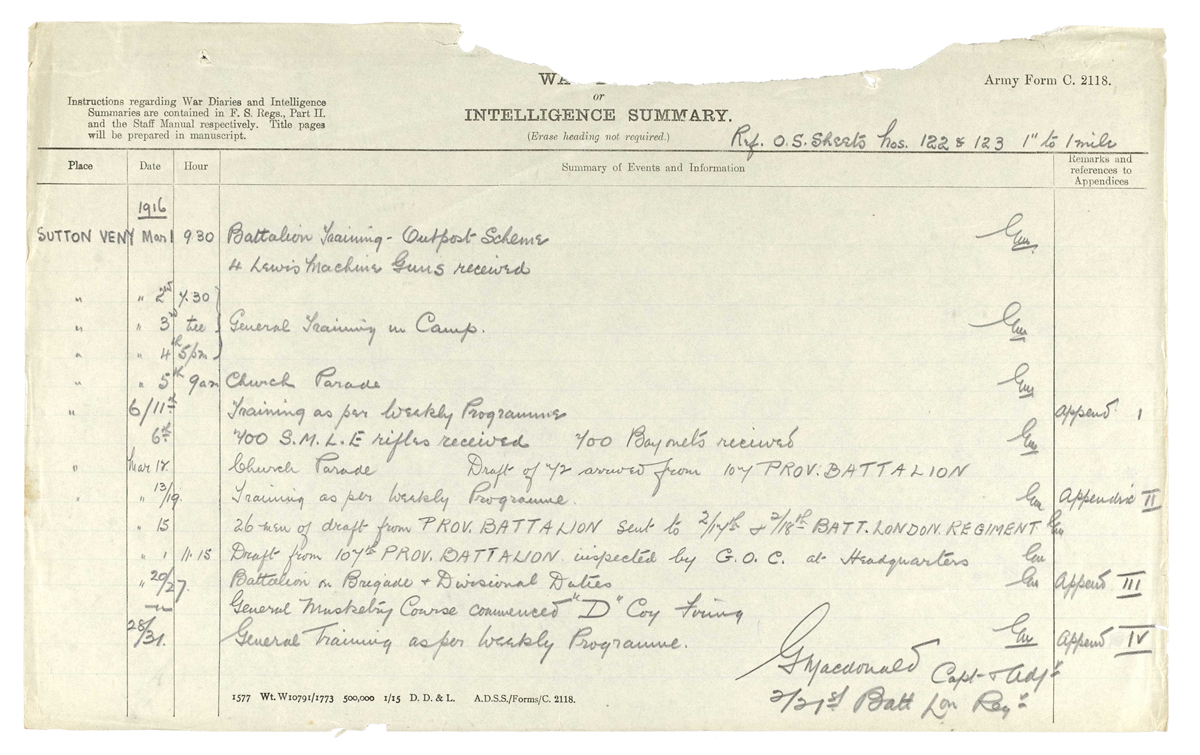 WA
or
INTELLIGENCE SUMMARY.
(Erase heading not required.)
Army Form C. 2118.
Instructions regarding War Diaries and Intelligence
Summaries are contained in F. S. Regs., Part II.
and the Staff Manual respectively. Title pages
will be prepared in manuscript.
Ref. O.S. Sheets Nos. 122 & 123 1" to 1 mile
Place Date Hour Summary of Events and Information Remarks and references to Appendices
1916
SUTTON VENY Mar 1 9.30 Battalion Training - Outpost Scheme GM
4 Lewis Machine Guns received
" " 2nd 7.30
" " 3rd General Training in Camp. GM
" " 4th 5pm
" " 5th 9am Church Parade GM
" 6/11th Training as per Weekly Programme Append 1
6th 700 S.M.L.E rifles received 700 Bayonets received GM
" Mar 12 Church Parade Draft of 72 arrived from 107 PROV. BATTALION
" " 13/19. Training as per Weekly Programme. GM Appendix II
" 15 26 men of draft from PROV. BATTALION sent to 2/17th & 2/18th BATT. LONDON. REGIMENT GM
" 1 11.15 Draft from 107th PROV. BATTALION inspected by G.O.C. at Headquarters GM
" 20/27. Battalion on Brigade & Divisional Duties GM Append III
General Musketry Course commenced "D" Coy Firing
28/31. General Training as per Weekly Programme. GM Append IV
G Macdonald Capt & Adjt
2/21st Batt Lon Regt
1577 Wt. W10791/1773 500,000 1/15 D. D. & L. A.D.S.S./Forms/C. 2118.